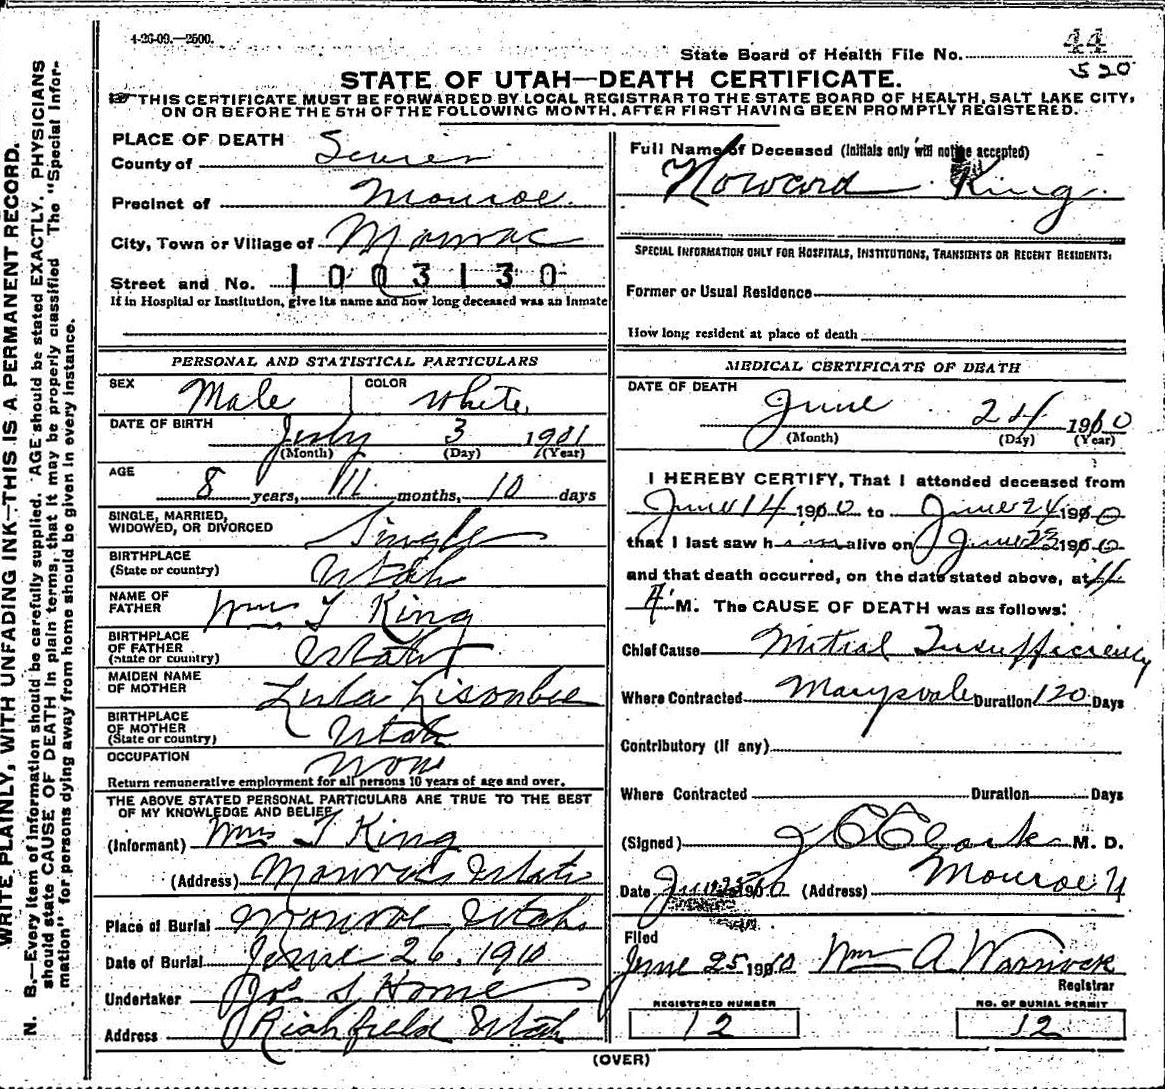 4-26-09.—2500.
State Board of Health File No. 44
520
STATE OF UTAH—DEATH CERTIFICATE.
THIS CERTIFICATE MUST BE FORWARDED BY LOCAL REGISTRAR TO THE STATE BOARD OF HEALTH, SALT LAKE CITY,
ON OR BEFORE THE 5TH OF THE FOLLOWING MONTH, AFTER FIRST HAVING BEEN PROMPTLY REGISTERED.
WRITE PLAINLY, WITH UNFADING INK—THIS IS A PERMANENT RECORD.
N. B.—Every item of information should be carefully supplied. AGE should be stated EXACTLY. PHYSICIANS
should state CAUSE OF DEATH in plain terms, that it may be properly classified. The "Special Infor-
mation" for persons dying away from home should be given in every instance.
PLACE OF DEATH
County of Sevier
Precinct of Monroe.
City, Town or Village of Monroe
Street and No. 1003130
If in Hospital or Institution, give its name and how long deceased was an inmate
Full Name of Deceased (Initials only will not be accepted)
Howard King.
SPECIAL INFORMATION ONLY FOR HOSPITALS, INSTITUTIONS, TRANSIENTS OR RECENT RESIDENTS:
Former or Usual Residence
How long resident at place of death
PERSONAL AND STATISTICAL PARTICULARS
SEX Male COLOR White.
DATE OF BIRTH July 3 1901
(Month) (Day) (Year)
AGE
8 years, 11 months, 10 days
SINGLE, MARRIED,
WIDOWED, OR DIVORCED Single
BIRTHPLACE
(State or country) Utah
NAME OF
FATHER Wm T King
BIRTHPLACE
OF FATHER
(State or country) Utah
MAIDEN NAME
OF MOTHER Lula Lisonbee
BIRTHPLACE
OF MOTHER
(State or country) Utah
OCCUPATION None
Return remunerative employment for all persons 10 years of age and over.
THE ABOVE STATED PERSONAL PARTICULARS ARE TRUE TO THE BEST
OF MY KNOWLEDGE AND BELIEF
(Informant) Wm T King
(Address) Monroe Utah
Place of Burial Monroe Utah.
Date of Burial June 26, 1910
Undertaker Jos S Horne
Address Richfield Utah
MEDICAL CERTIFICATE OF DEATH
DATE OF DEATH
June 24 1910
(Month) (Day) (Year)
I HEREBY CERTIFY, That I attended deceased from
June 14 1910 to June 24 1910
that I last saw him alive on June 23 1910
and that death occurred, on the date stated above, at 11
A M. The CAUSE OF DEATH was as follows:
Chief Cause Mitral Insufficiency
Where Contracted Marysvale Duration 120 Days
Contributory (if any)
Where Contracted Duration Days
(Signed) J C Clark M. D.
Date June 25 1910 (Address) Monroe U
Filed
June 25 1910 Wm A Warnock
Registrar
REGISTERED NUMBER
12
NO. OF BURIAL PERMIT
12
(OVER)